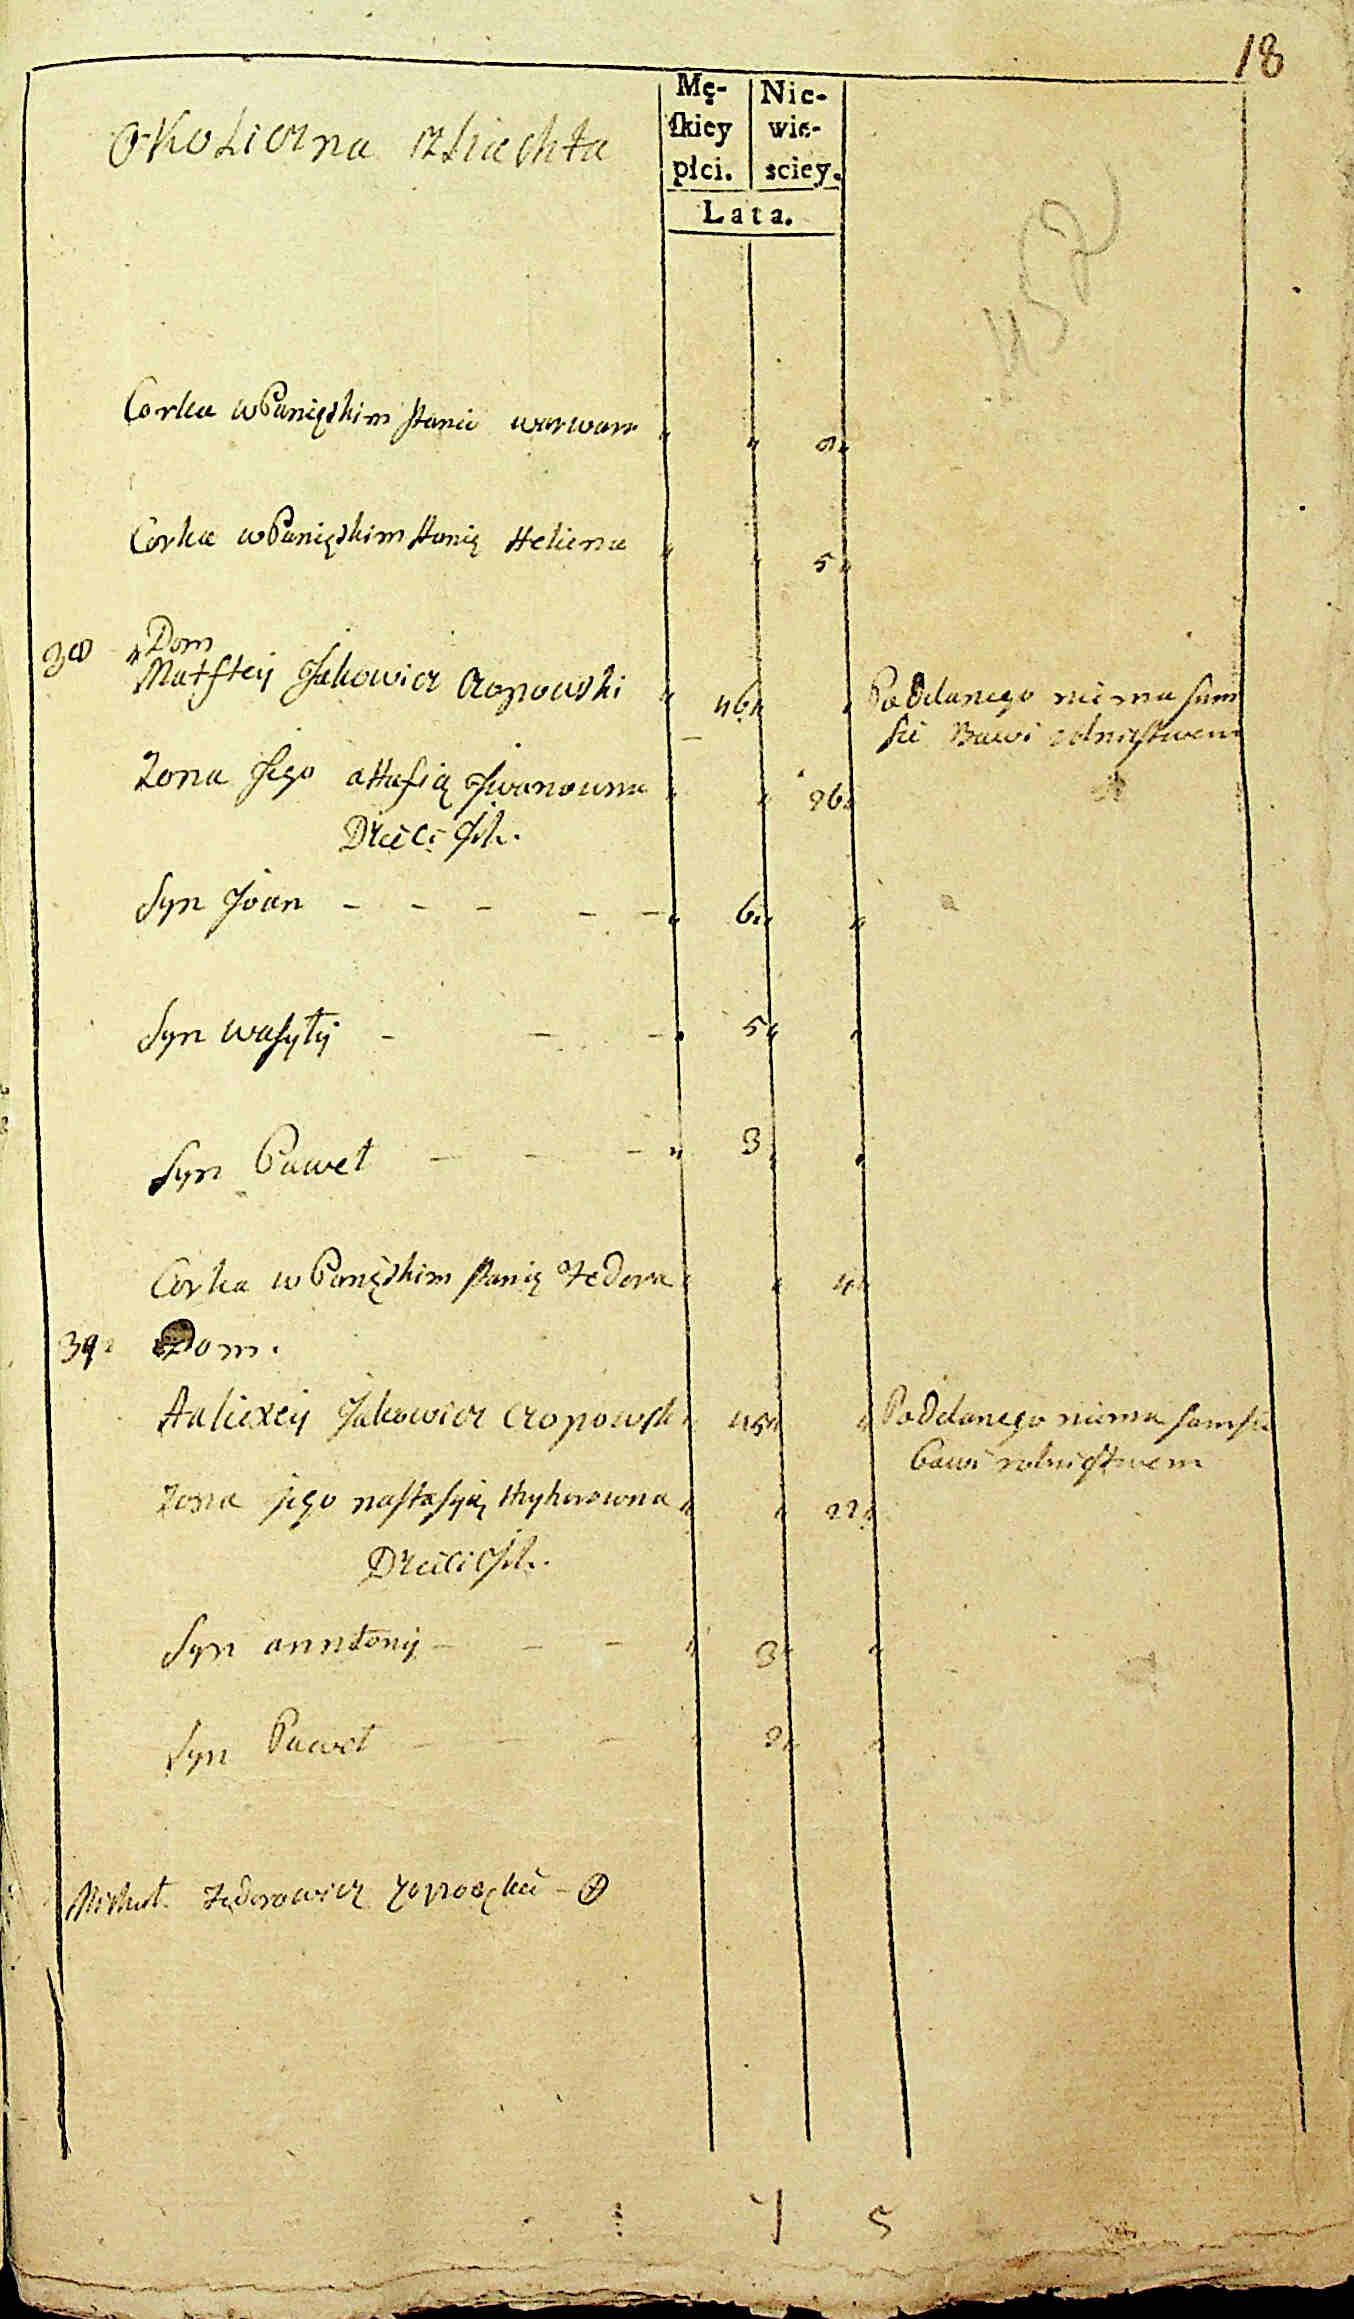 18
Okoliczna szliachta
Mę-
skiey
płci.
Nie-
wie-
sciey.
Lata.
452
Corka w Panięskim stanie warwara
Corka w Panięskim stanię Heliena 5
38 Dom
Matftey Jakowicz Czopowski 46 Poddanego niema sam
sie Bawi rolnistwem
Zona jego Iwanowna 26
Dzieci Jch.
Syn Joan - - - - - 6
Syn wasyłij - - - 5
Syn Paweł - - - 3
Corka w Panęskim stanię Fedora 4
39 Dom.
Haliexeij Jakowicz Czopowski 45 Poddanego niema sam sie
bawi rolnistwem
Zona jego nastasyią Hryhorowna 22
Dzieci Jch.
Syn anntonij - - - 3
Syn Paweł - - - 2
Michał Fedorowicz
7 5